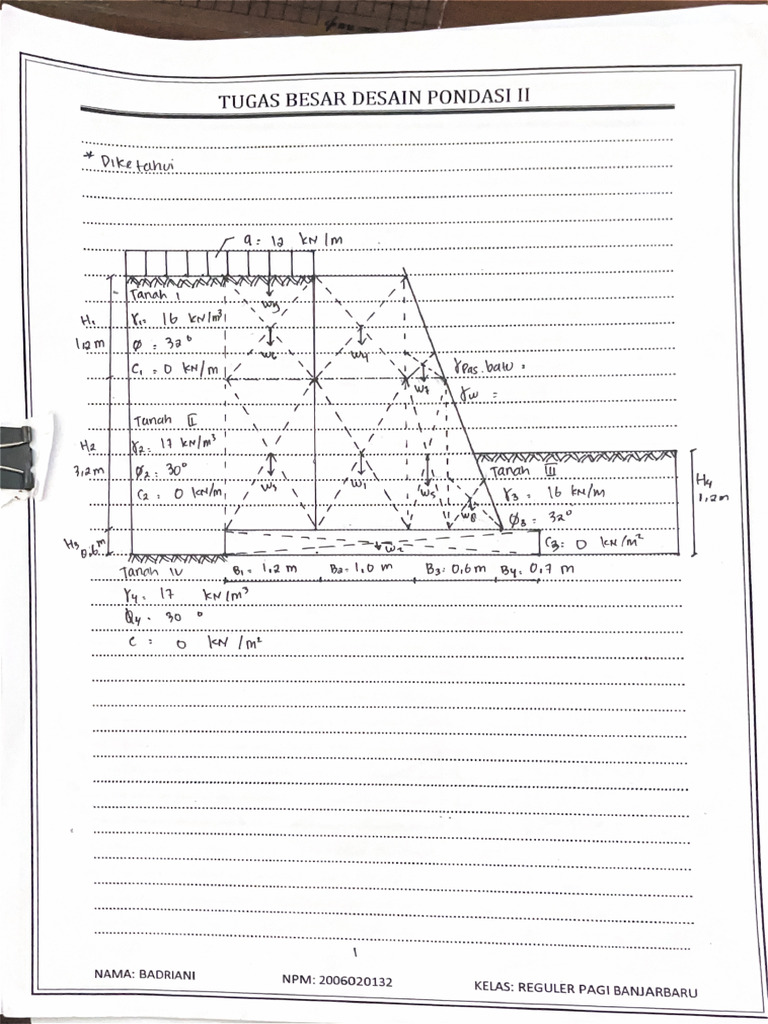 TUGAS BESAR DESAIN PONDASI II
* Diketahui
q = 12 kN/m
Tanah I
W3
H1
γ1 = 16 kN/m³
1,2 m
W6
W4
ϕ = 32°
C1 = 0 kN/m
γ Pas. batu =
W7
γw =
Tanah II
H2
γ2 = 17 kN/m³
3,2 m
ϕ2 = 30°
W3
W1
W5
Tanah III
H4
C2 = 0 kN/m
γ3 = 16 kN/m
1,2 m
W8
ϕ3 = 32°
H3
0,6 m
W2
C3 = 0 kN/m²
Tanah IV
B1 = 1,2 m B2 = 1,0 m B3 = 0,6 m B4 = 0,7 m
γ4 = 17 kN/m³
Q4 = 30°
C = 0 kN/m²
1
NAMA: BADRIANI NPM: 2006020132 KELAS: REGULER PAGI BANJARBARU